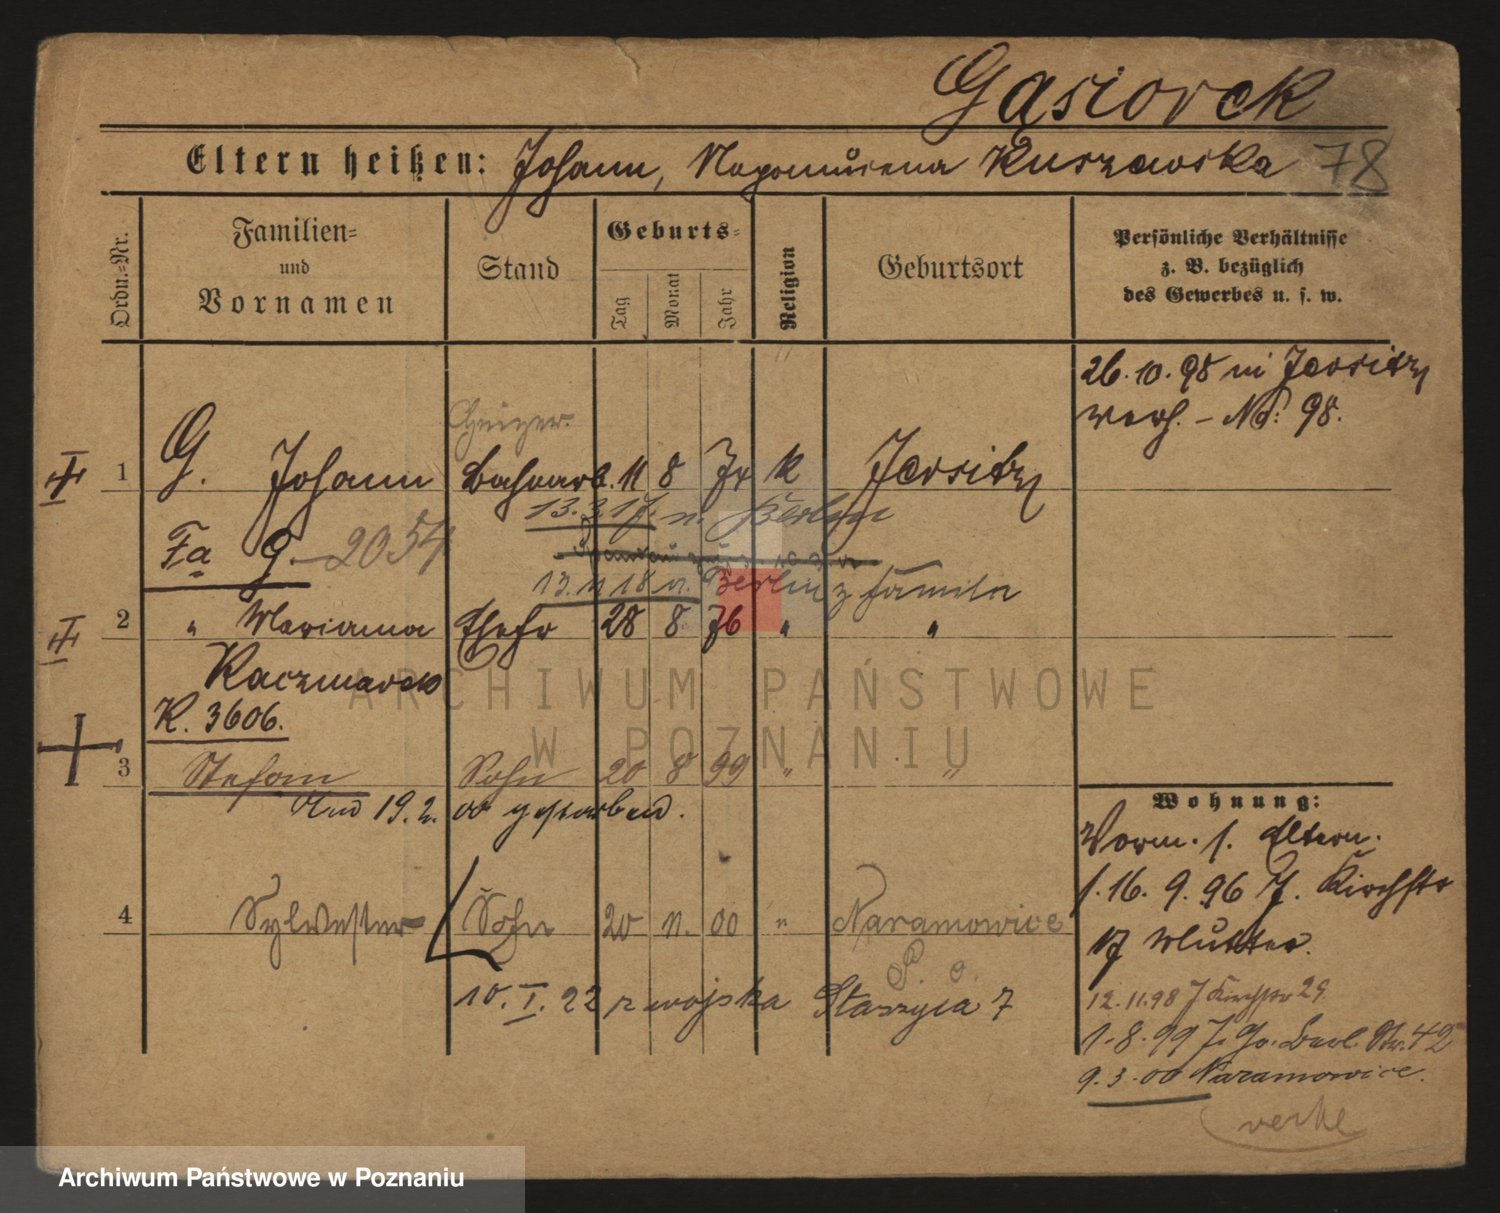 Gąsiorek
Eltern heißen: Johann, Nepomucena Kuszewska 78
Ordn.-Nr.
Familien-
und
Vornamen
Stand
Geburts-
Tag
Monat
Jahr
Religion
Geburtsort
Persönliche Verhältnisse
z. B. bezüglich
des Gewerbes u. s. w.
26.10.98 in Jersitz
verh. – No: 98.
1 G. Johann Bahnarb. 11 8 7 k Jersitz
13.3.17. n. Berlin
Fa G. - 2054
13.11.18 v. Berlin z familn
2 " Marianna Ehefr 28 8 76 " "
Kaczmarek
K. 3606.
3 Stefan Sohn 20 8 99 " "
Am 19.2. 00 gestorben.
Wohnung:
Vorm. s. Eltern.
1.16.9.96 J. Kirchstr
17 Mutter.
4 Sylwester Sohn 20 11. 00 " Naramowice
P. o.
10. I. 22 z wojska Staszyca 7
12.11.98 J Kirchstr 29
1.8.99 J. Gr. Berl. Str. 42
9.3.00 Naramowice.
ARCHIWUM PAŃSTWOWE
W POZNANIU
Archiwum Państwowe w Poznaniu